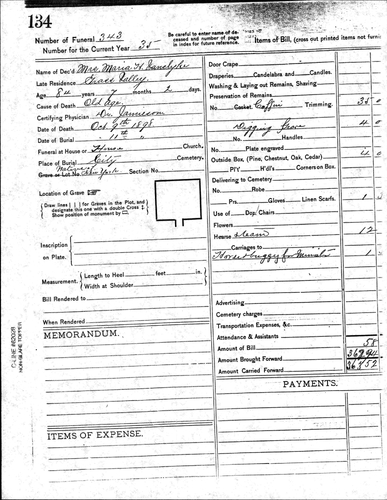 134
Number of Funeral 343
Number for the Current Year 35
Name of Dec'd Mrs. Maria H.
Late Residence Grass Valley
Age 84 years 7 months 2 days.
Cause of Death Old Age
Certifying Physician Dr. Jamieson
Date of Death Oct 9th 1898
Date of Burial 11th "
Funeral at House or Home
Place of Burial City Cemetery,
Grave or Lot No. Section No.
Location of Grave
Draw lines for Graves in the Plot, and
designate this one with a double Cross
Show position of monument by
Inscription
on Plate.
Measurement. Length to Heel feet in.
Width at Shoulder
Bill Rendered to
When Rendered
MEMORANDUM.
ITEMS OF EXPENSE.
C-LINE #62028
NON-GLARE, TOPPER
ceased and number of page
in index for future reference.
Items of Bill, (cross out printed items not
Door Crape
Draperies Candelabra and Candles.
Washing & Laying out Remains, Shaving
Preservation of Remains
No. Casket, Coffin Trimming. 35
Digging Grave 4 0
No. Handles
Plate engraved
Outside Box, (Pine, Chestnut, Oak, Cedar) 4 0
PIY H'd'l's Corners on Box.
Delivering to Cemetery
No. Robe
Prs. Gloves Linen Scarfs 1
Use of Dop. Chairs
Flowers
Hearse team 12
Carriages to
Horse & buggy for Minister 1
Advertising
Cemetery charges
Transportation Expenses, &c.
Attendance & Assistants
Amount of Bill 58
Amount Brought Forward
Amount Carried Forward
PAYMENTS.